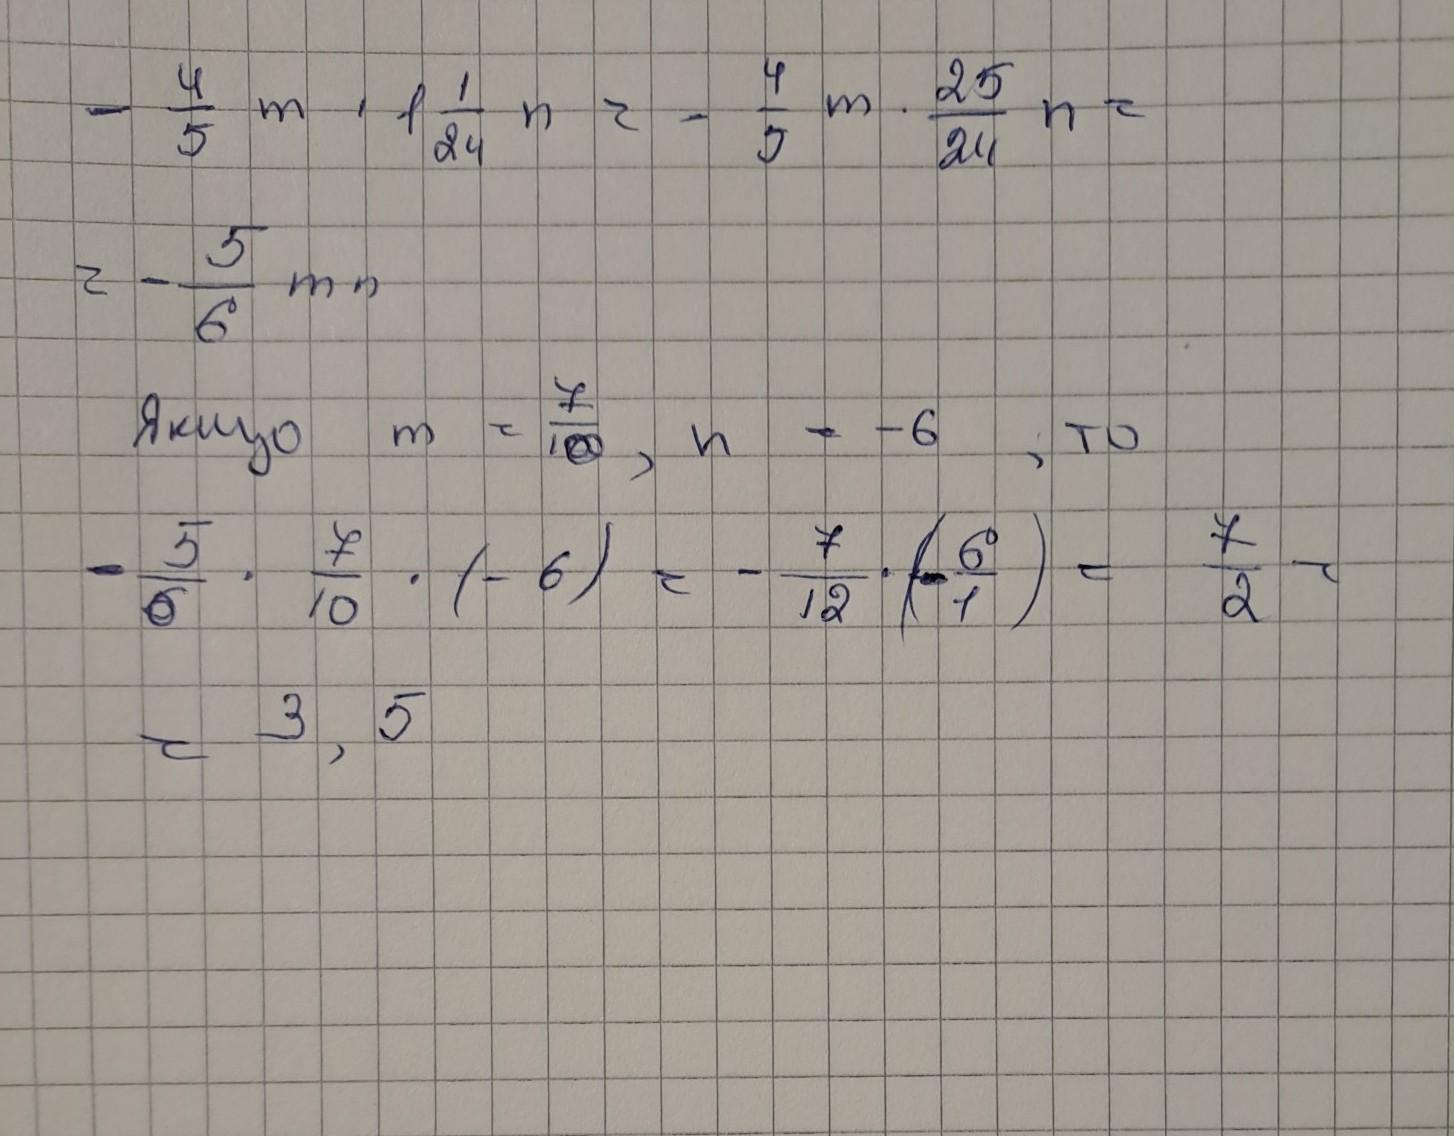 - 4/5 m · 1 1/24 n = - 4/5 m · 25/24 n =
= - 5/6 mn
Якщо m = 7/10, n = -6 ; то
- 5/6 · 7/10 · (- 6) = - 7/12 · (- 6/1) = 7/2 =
= 3,5